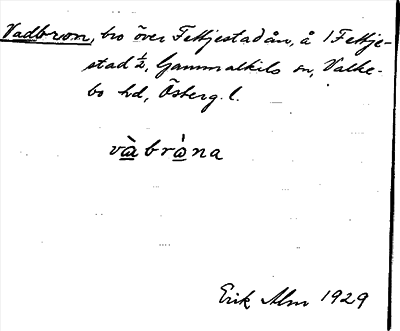 Vadbron, bro över Fettjestadån, å i Fettje-
stad ½, Gammalkils sn, Valke-
bo hd, Österg. l.
vàbrå̀na
Erik Alm 1929